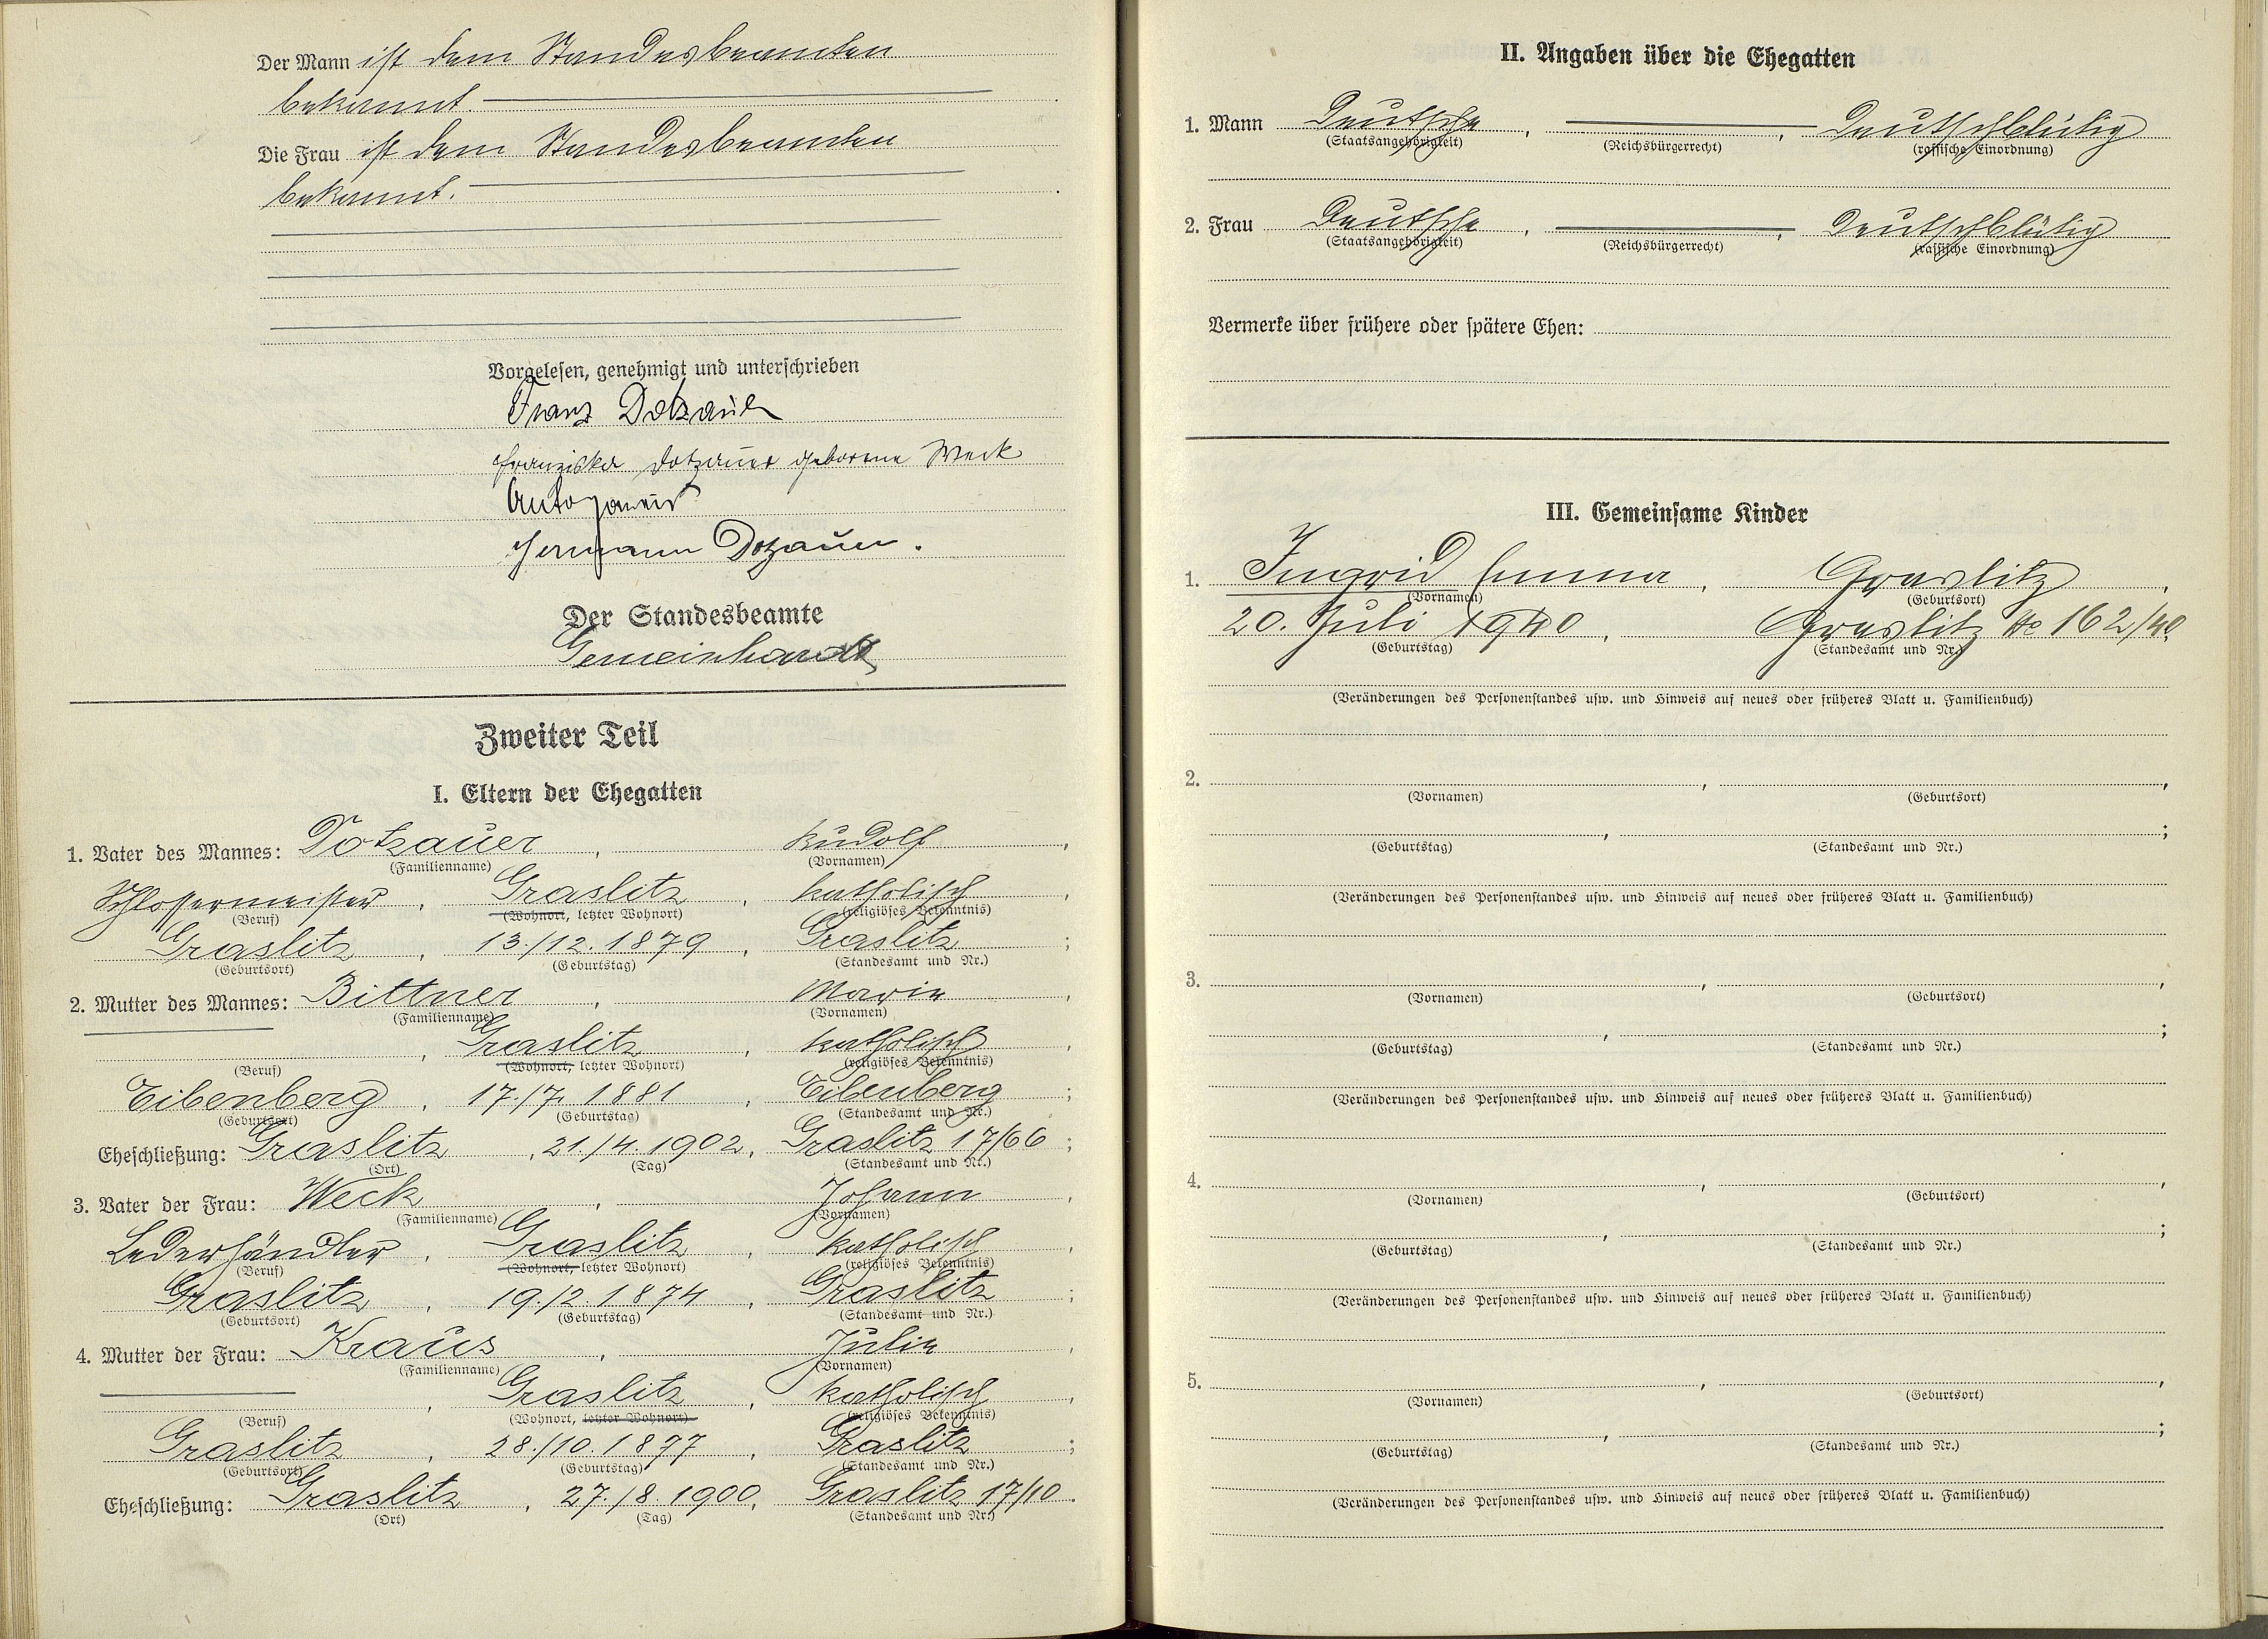 Der Mann ist dem Standesbeamten
bekannt.
Die Frau ist dem Standesbeamten
bekannt.
Vorgelesen, genehmigt und unterschrieben
Franz Dotzauer
Franziska Dotzauer geborene Weck
Hermann Dotzauer.
Der Standesbeamte
Gemeinhardt
Zweiter Teil
I. Eltern der Ehegatten
1. Vater des Mannes: Dotzauer, Rudolf,
(Familienname) (Vornamen)
Schlossermeister, Graslitz, katholisch,
(Beruf) (Wohnort, letzter Wohnort) (religiöses Bekenntnis)
Graslitz, 13./12. 1879, Graslitz;
(Geburtsort) (Geburtstag) (Standesamt und Nr.)
2. Mutter des Mannes: Bittner, Marie,
(Familienname) (Vornamen)
, Graslitz, katholisch,
(Beruf) (Wohnort, letzter Wohnort) (religiöses Bekenntnis)
Eibenberg, 17./7. 1881, Eibenberg;
(Geburtsort) (Geburtstag) (Standesamt und Nr.)
Eheschließung: Graslitz, 21./4. 1902, Graslitz 17/66;
(Ort) (Tag) (Standesamt und Nr.)
3. Vater der Frau: Weck, Johann,
(Familienname) (Vornamen)
Lederhändler, Graslitz, katholisch,
(Beruf) (Wohnort, letzter Wohnort) (religiöses Bekenntnis)
Graslitz, 19./2. 1874, Graslitz;
(Geburtsort) (Geburtstag) (Standesamt und Nr.)
4. Mutter der Frau: Kraus, Julie,
(Familienname) (Vornamen)
, Graslitz, katholisch,
(Beruf) (Wohnort, letzter Wohnort) (religiöses Bekenntnis)
Graslitz, 28./10. 1877, Graslitz;
(Geburtsort) (Geburtstag) (Standesamt und Nr.)
Eheschließung: Graslitz, 27./8. 1900, Graslitz 17/10.
(Ort) (Tag) (Standesamt und Nr.)
II. Angaben über die Ehegatten
1. Mann Deutsche, , Deutschblütig
(Staatsangehörigkeit) (Reichsbürgerrecht) (rassische Einordnung)
2. Frau Deutsche, , Deutschblütig
(Staatsangehörigkeit) (Reichsbürgerrecht) (rassische Einordnung)
Vermerke über frühere oder spätere Ehen:
III. Gemeinsame Kinder
1. Ingrid Emma, Graslitz,
(Vornamen) (Geburtsort)
20. Juli 1940, Graslitz No 162/40
(Geburtstag) (Standesamt und Nr.)
(Veränderungen des Personenstandes usw. und Hinweis auf neues oder früheres Blatt u. Familienbuch)
2. , ,
(Vornamen) (Geburtsort)
, ;
(Geburtstag) (Standesamt und Nr.)
(Veränderungen des Personenstandes usw. und Hinweis auf neues oder früheres Blatt u. Familienbuch)
3. , ,
(Vornamen) (Geburtsort)
, ;
(Geburtstag) (Standesamt und Nr.)
(Veränderungen des Personenstandes usw. und Hinweis auf neues oder früheres Blatt u. Familienbuch)
4. , ,
(Vornamen) (Geburtsort)
, ;
(Geburtstag) (Standesamt und Nr.)
(Veränderungen des Personenstandes usw. und Hinweis auf neues oder früheres Blatt u. Familienbuch)
5. , ,
(Vornamen) (Geburtsort)
, ;
(Geburtstag) (Standesamt und Nr.)
(Veränderungen des Personenstandes usw. und Hinweis auf neues oder früheres Blatt u. Familienbuch)